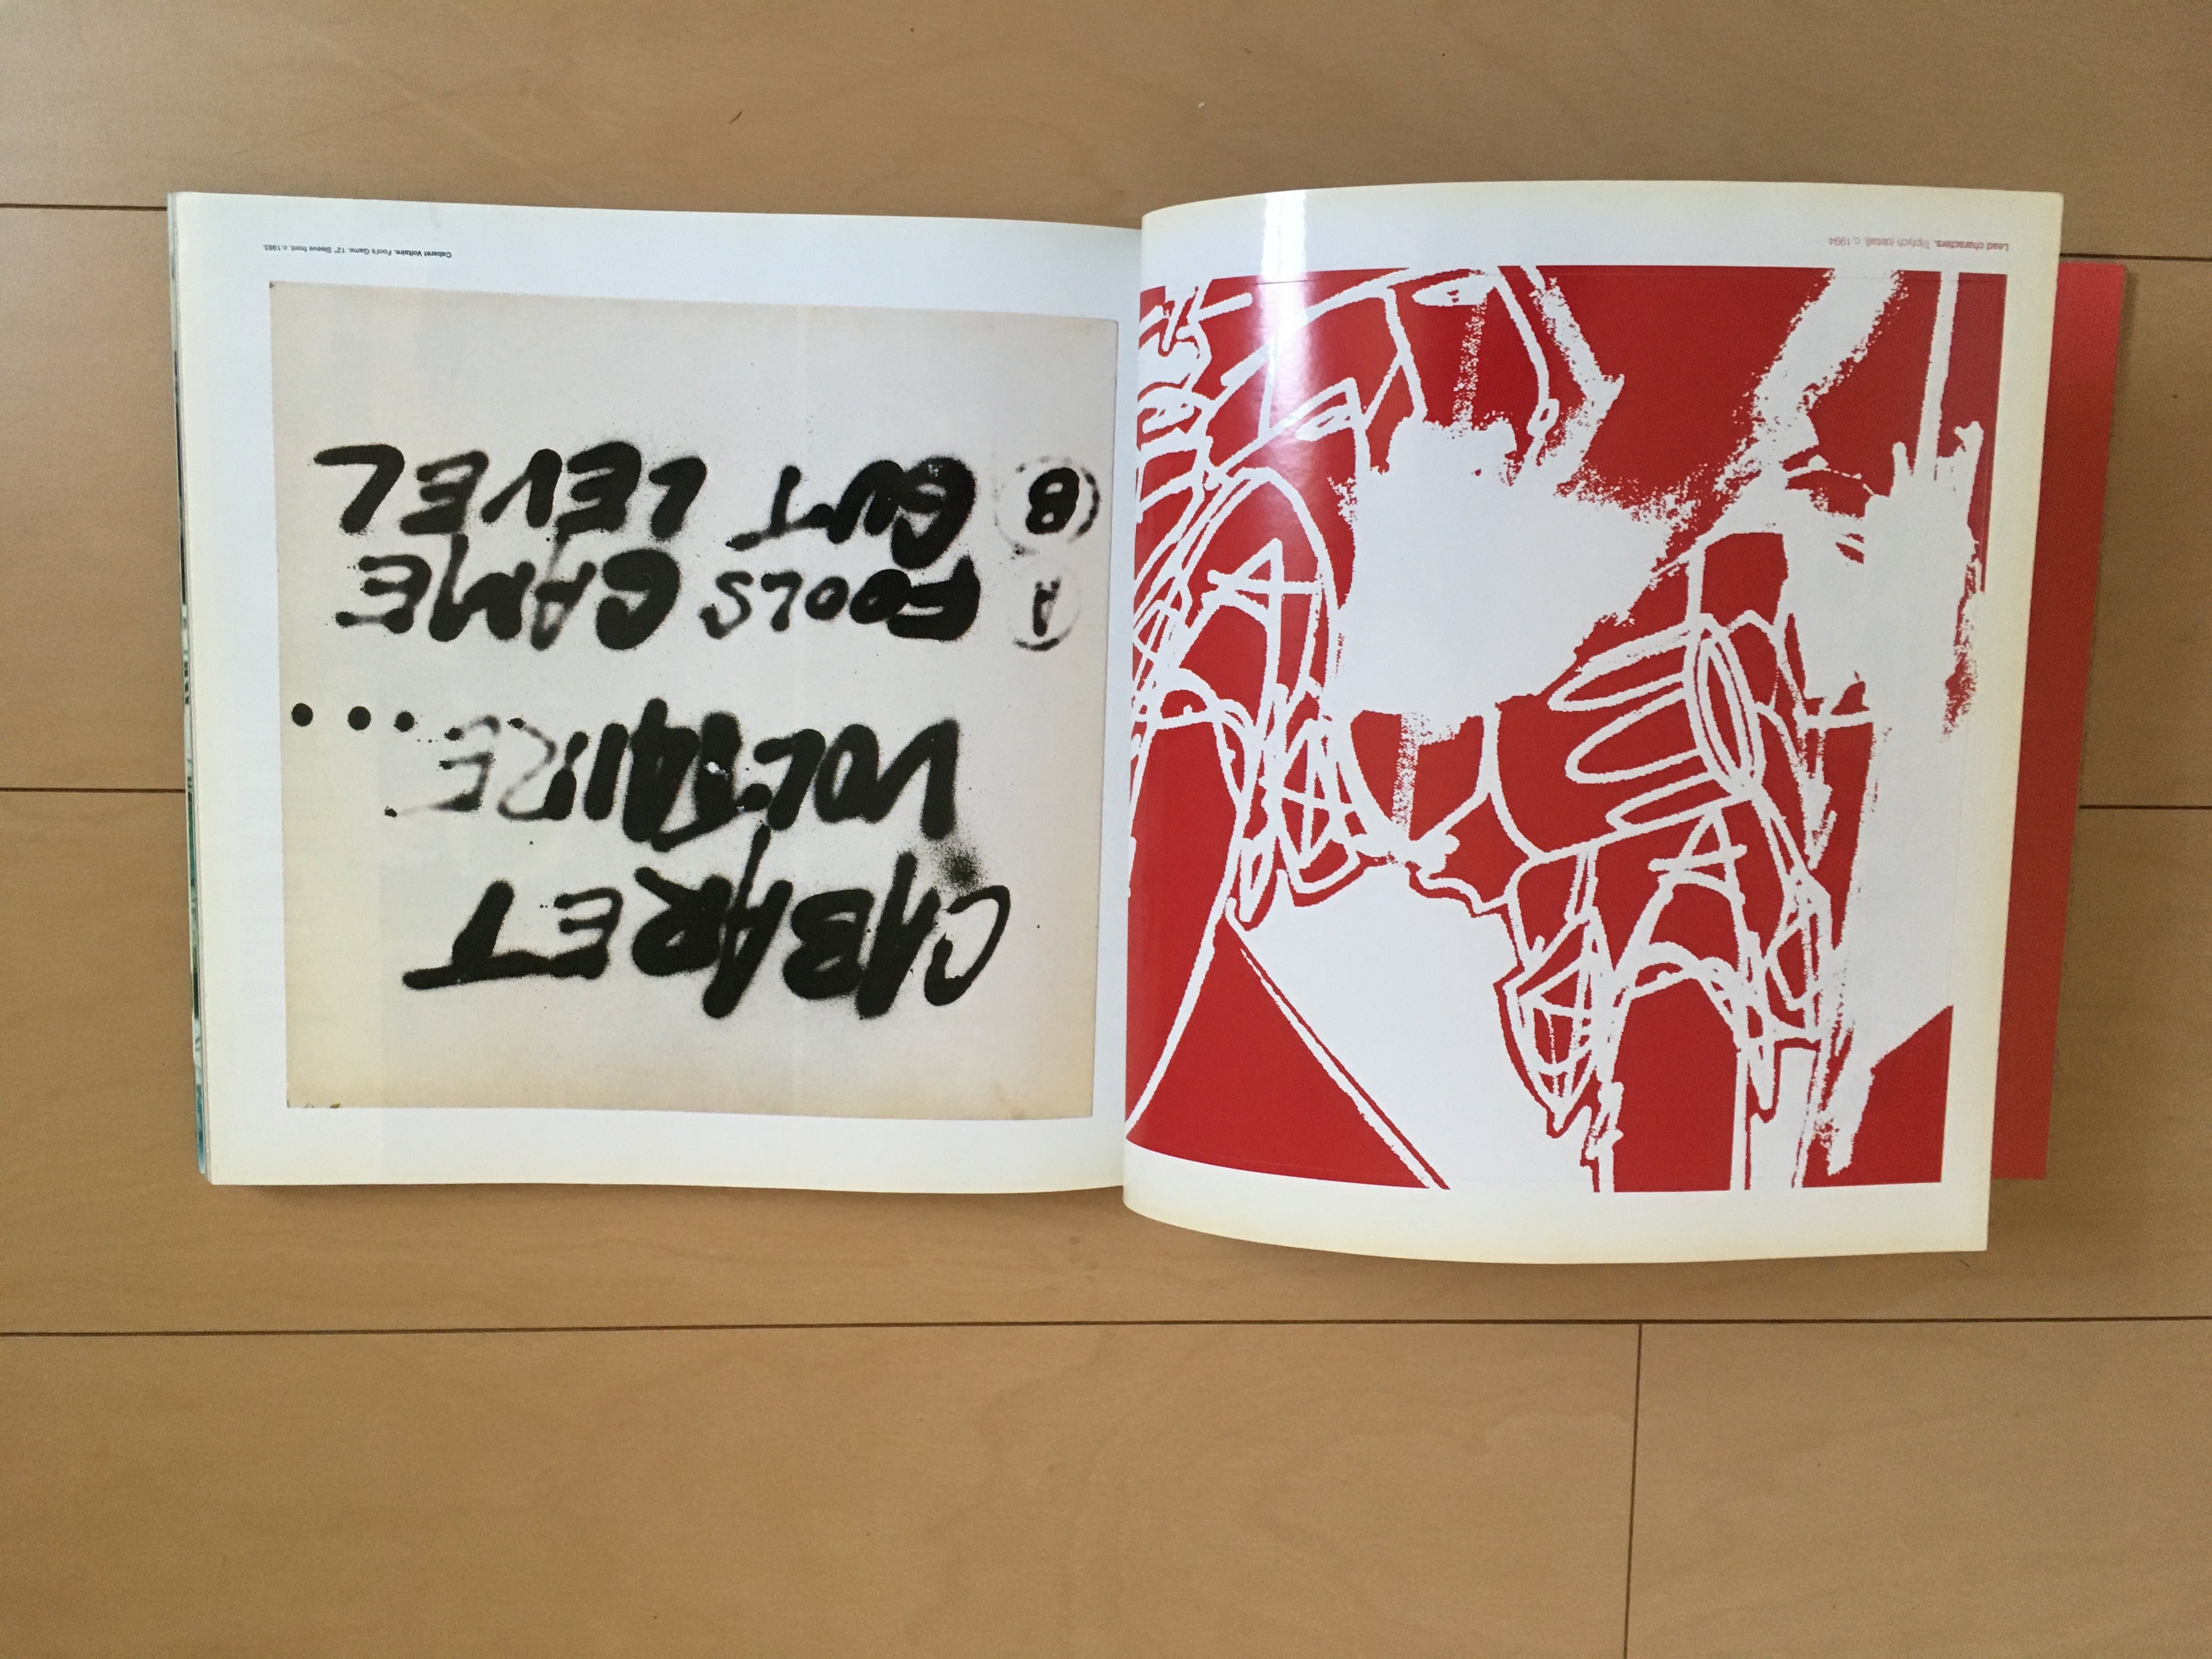 Lead characters. Triptych (detail). c. 1994
Cabaret Voltaire. Fool's Game. 12" Sleeve front. c. 1983.
CABARET
VOLTAIRE...
A FOOLS GAME
B GUT LEVEL